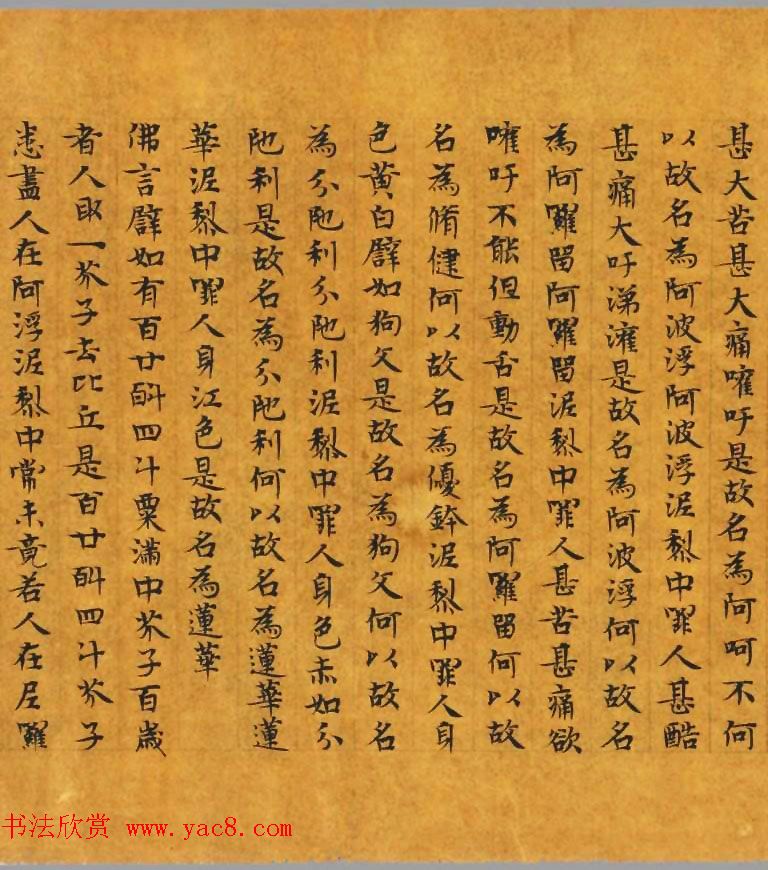 甚大苦甚大痛嚾吁是故名為阿呵不何
以故名為阿波浮阿波浮泥梨中罪人甚酷
甚痛大吁涕濩是故名為阿波浮何以故名
為阿羅留阿羅留泥梨中罪人甚苦甚痛欲
嚾吁不能但動舌是故名為阿羅留何以故
名為脩健何以故名為優鉢泥梨中罪人身
色黄白譬如狗矢是故名為狗矢何以故名
為分陁利分陁利泥梨中罪人身色赤如分
陁利是故名為分陁利何以故名為蓮華蓮
華泥梨中罪人身江色是故名為蓮華
佛言譬如有百廿斛四斗粟滿中芥子百歲
者人取一芥子去比丘是百廿斛四斗芥子
悉盡人在阿浮泥梨中常未竟若人在尼羅
书法欣赏 www.yac8.com